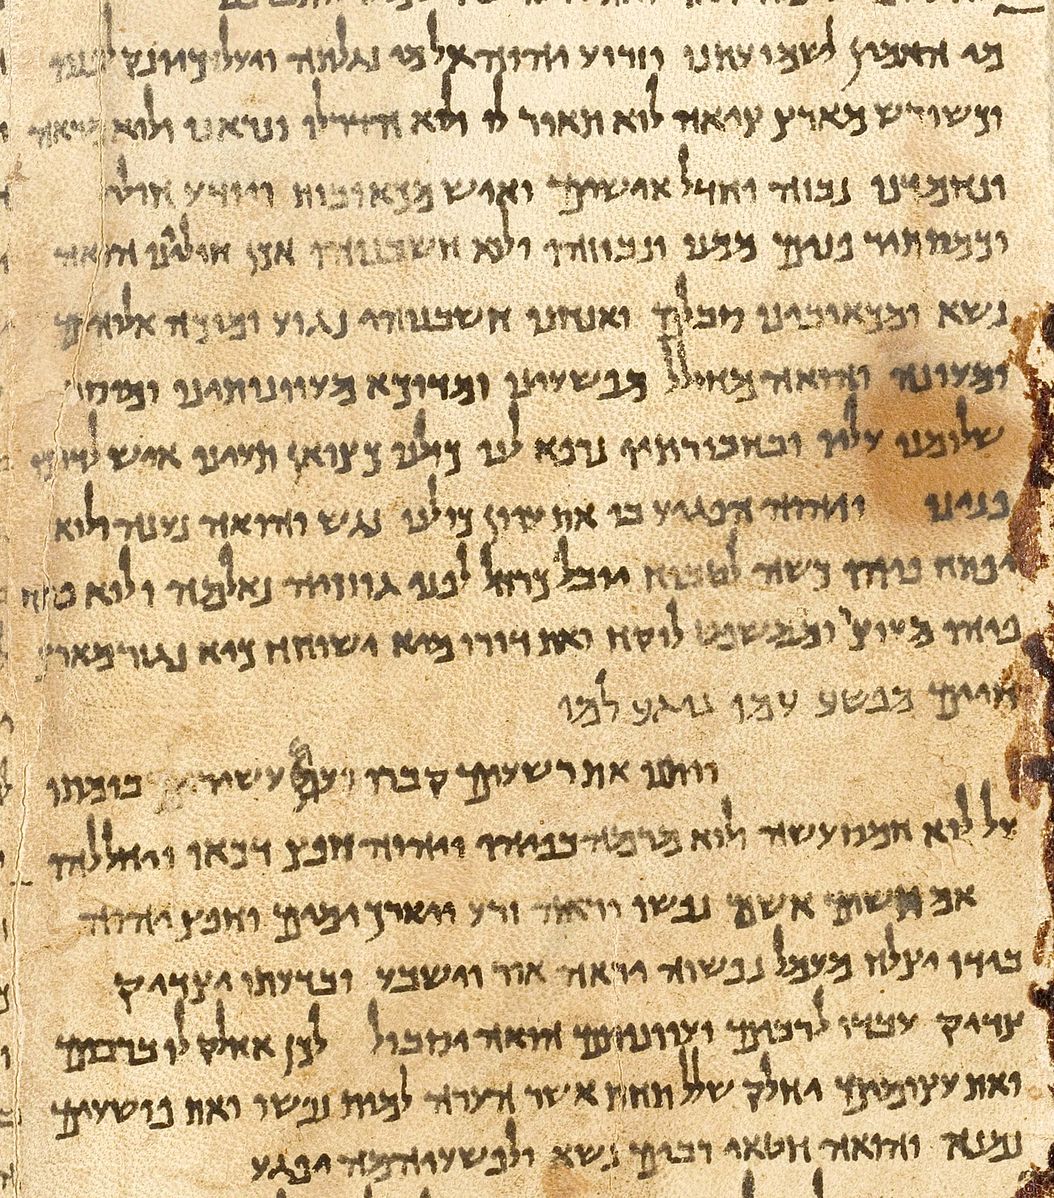 מי האמין לשמועתנו וזרוע יהוה אל מי נגלתה ויעל כיונק לפניו
וכשורש מארץ ציאה לוא תאור לו ולוא הדר לו ונראנו ולוא מראה
ונחמדנו נבזה וחדל אישים ואיש מכאובות ויודע חולי
וכמסתיר פנים ממנו ונבוזהו ולוא חשבנוהו אכן חוליינו הואה
נשא ומכאובינו סבלם ואנחנו חשבנוהו נגוע ומוכה אלוהים
ומעונה והואה מחולל מפשעינו ומדוכא מעוונותינו ומוסר
שלומנו עליו ובחבורתיו נרפא לנו כולנו כצואן תעינו איש לדרכו
פנינו ויהוה הפגיע בו את עוון כולנו נגש והואה נענה ולוא
יפתח פיהו כשה לטבוח יובל כרחל לפני גוזזיה נאלמה ולוא פתח
פיהו מעוצר וממשפט לוקח ואת דורו מיא ישוחח כיא נגזר מארץ
חיים מפשע עמו נוגע למו
ויתנו את רשעים קברו ועם עשירים בומתו
על לוא חמס עשה ולוא מרמה בפיהו ויהוה חפץ דכאו ויחללהו
אם תשים אשם נפשו יראה זרע ויארך ימים וחפץ יהוה
בידו יצלח מעמל נפשוה יראה אור וישבע ובדעתו יצדיק
צדיק עבדו לרבים ועוונותם הואה יסבול לכן אחלק לו ברבים
ואת עצומים יחלק שלל תחת אשר הערה למות נפשו ואת פושעים
נמנה והואה חטאי רבים נשא ולפשעיהמה יפגיע